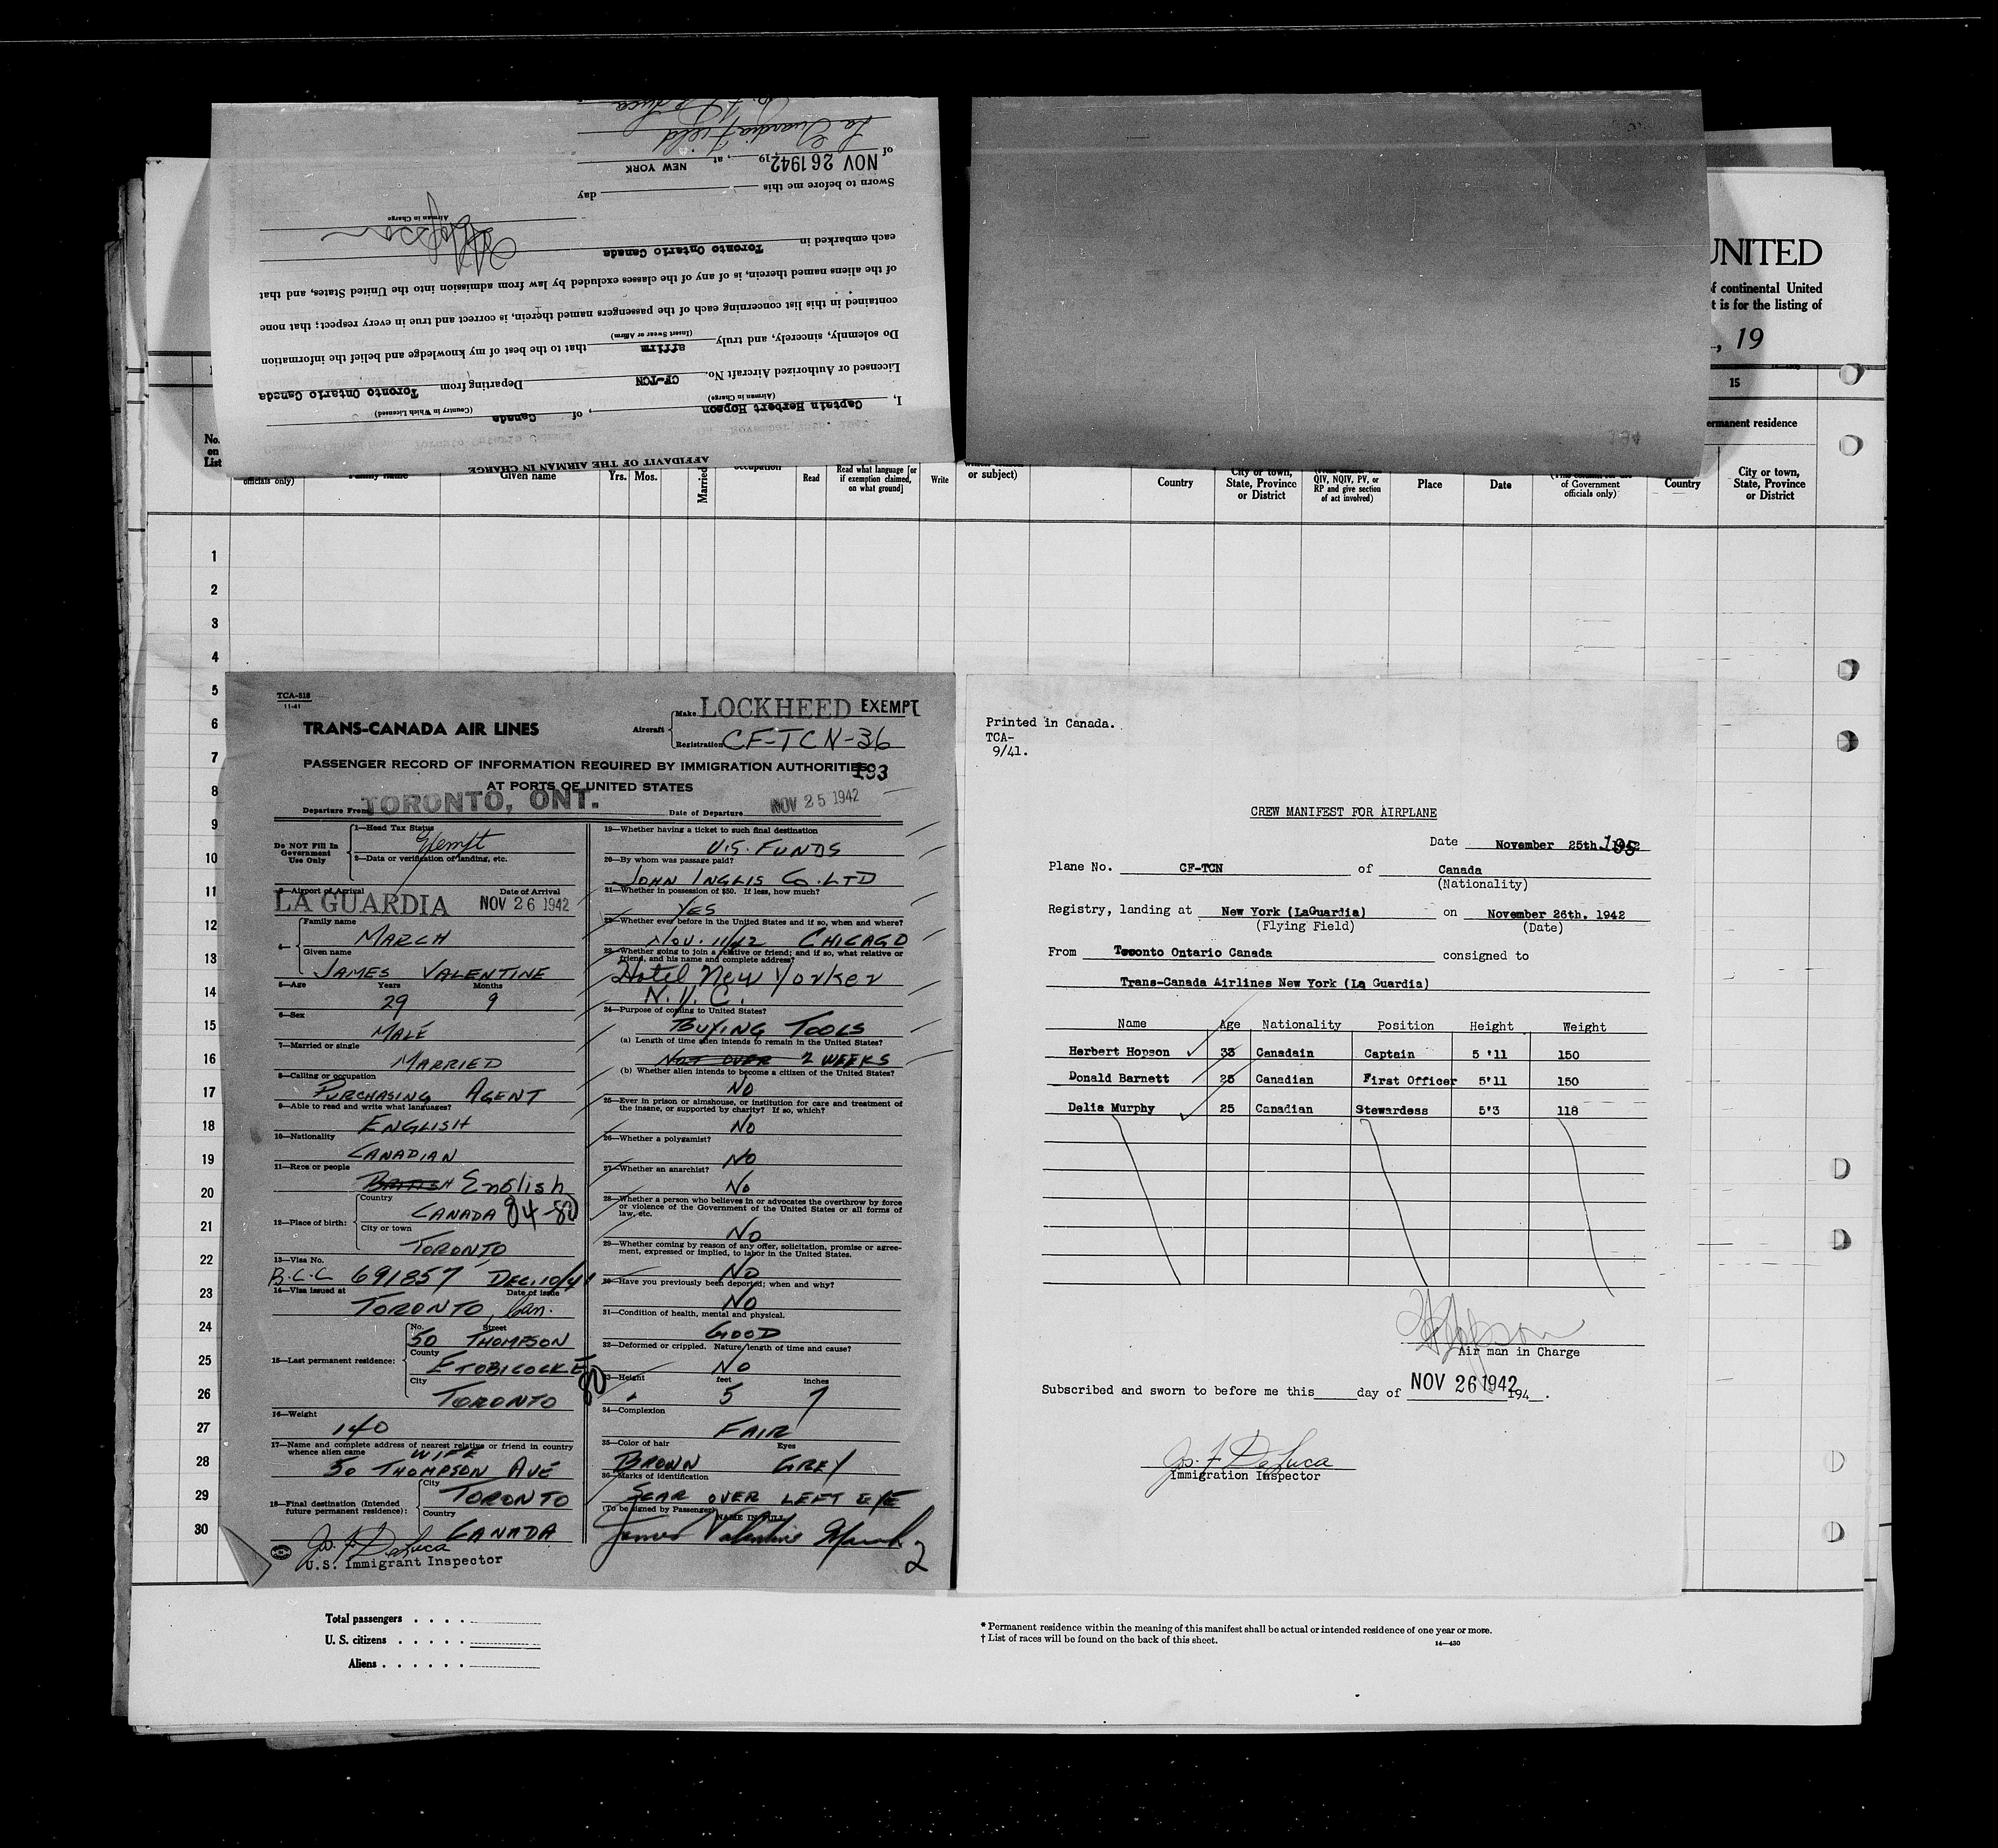 AFFIDAVIT OF THE AIRMAN IN CHARGE
I, Captain Herbert Hopson, of Canada
(Airman in Charge) (Country in Which Licensed)
Licensed or Authorized Aircraft No. CF-TCN Departing from Toronto Ontario Canada
Do solemnly, sincerely, and truly affirm that to the best of my knowledge and belief the information
(Insert Swear or Affirm)
contained in this list concerning each of the passengers named therein, is correct and true in every respect; that none
of the aliens named therein, is of any of the classes excluded by law from admission into the United States, and that
each embarked in Toronto Ontario Canada
H Hopson
Airman in Charge
Sworn to before me this day
of NOV 26 1942, 19 , at NEW YORK
La Guardia Field
UNITED
of continental United
t is for the listing of
, 19
15
ermanent residence
No. on List
officials only) Family name Given name Yrs. Mos. Married occupation Read Read what language [or if exemption claimed, on what ground] Write or subject) Country City or town, State, Province or District QIV, NQIV, PV, or RP and give section of act involved) Place Date of Government officials only) Country City or town, State, Province or District
1
2
3
4
5
6
7
8
9
10
11
12
13
14
15
16
17
18
19
20
21
22
23
24
25
26
27
28
29
30
TCA-518
11-41
TRANS-CANADA AIR LINES
Aircraft Make LOCKHEED EXEMPT
Registration CF-TCN-36
PASSENGER RECORD OF INFORMATION REQUIRED BY IMMIGRATION AUTHORITIES
193
AT PORTS OF UNITED STATES
Departure From TORONTO, ONT. Date of Departure NOV 25 1942
Do NOT Fill In Government Use Only
1—Head Tax Status Exempt
2—Data or verification of landing, etc.
3—Airport of Arrival LA GUARDIA Date of Arrival NOV 26 1942
4— Family name MARCH
Given name JAMES VALENTINE
5—Age Years 29 Months 9
6—Sex MALE
7—Married or single MARRIED
8—Calling or occupation PURCHASING AGENT
9—Able to read and write what languages? ENGLISH
10—Nationality CANADIAN
11—Race or people BRITISH English
12—Place of birth: Country CANADA 84-80
City or town TORONTO
13—Visa No. B.C.C 691857 DEC.10/41
Date of issue
14—Visa issued at TORONTO, Can.
15—Last permanent residence: No. 50 Street THOMPSON
County ETOBICOCKE
City TORONTO
80
16—Weight 140
17—Name and complete address of nearest relative or friend in country whence alien came WIFE
50 THOMPSON AVE
18—Final destination (Intended future permanent residence): City TORONTO
Country CANADA
Jos. F DeLuca
U.S. Immigrant Inspector
19—Whether having a ticket to such final destination
U.S. FUNDS
20—By whom was passage paid?
JOHN INGLIS CO. LTD
21—Whether in possession of $50. If less, how much?
YES
22—Whether ever before in the United States and if so, when and where?
NOV. 11/42 CHICAGO
23—Whether going to join a relative or friend; and if so, what relative or friend, and his name and complete address?
Hotel New Yorker
N.Y.C.
24—Purpose of coming to United States?
BUYING TOOLS
(a) Length of time alien intends to remain in the United States?
NOT OVER 2 WEEKS
(b) Whether alien intends to become a citizen of the United States?
NO
25—Ever in prison or almshouse, or institution for care and treatment of the insane, or supported by charity? If so, which?
NO
26—Whether a polygamist?
NO
27—Whether an anarchist?
NO
28—Whether a person who believes in or advocates the overthrow by force or violence of the Government of the United States or all forms of law, etc.
NO
29—Whether coming by reason of any offer, solicitation, promise or agreement, expressed or implied, to labor in the United States.
NO
30—Have you previously been deported; when and why?
NO
31—Condition of health, mental and physical.
GOOD
32—Deformed or crippled. Nature, length of time and cause?
NO
33—Height feet 5 inches 7
34—Complexion FAIR
35—Color of hair BROWN Eyes GREY
36—Marks of identification
SCAR OVER LEFT EYE
(To be signed by Passenger) NAME IN FULL
James Valentine March
2
Printed in Canada.
TCA-
9/41.
CREW MANIFEST FOR AIRPLANE
Date November 25th. 1942
195
Plane No. CF-TCN of Canada
(Nationality)
Registry, landing at New York (LaGuardia) on November 26th. 1942
(Flying Field) (Date)
From Toronto Ontario Canada consigned to
Trans-Canada Airlines New York (La Guardia)
Name Age Nationality Position Height Weight
Herbert Hopson 33 Canadain Captain 5'11 150
Donald Barnett 25 Canadian First Officer 5'11 150
Delia Murphy 25 Canadian Stewardess 5'3 118
H Hopson
Air man in Charge
Subscribed and sworn to before me this day of NOV 26 1942 194 .
Jos. F DeLuca
Immigration Inspector
Total passengers . . . .
U. S. citizens . . . . .
Aliens . . . . . .
* Permanent residence within the meaning of this manifest shall be actual or intended residence of one year or more.
† List of races will be found on the back of this sheet.
14—430